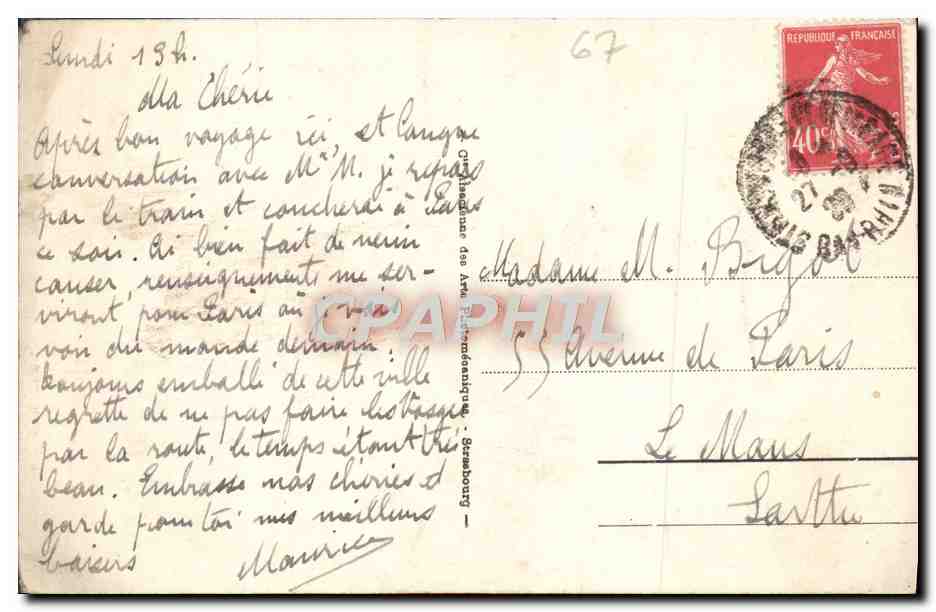 Lundi 13 h.
67
Ma Chérie
Après bon voyage ici, et longue
conversation avec Mr M. je repars
par le train et coucherai à Paris
ce soir. Ai bien fait de venir
causer, renseignements me ser-
viront pour Paris où je vais
voir du monde demain.
toujours emballé de cette ville
regrette de ne pas faire les Vosges
par la route, le temps étant très
beau. Embrasse nos chéries et
garde pour toi mes meilleurs
baisers Maurice
Cie Alsacienne des Arts Photomécaniques - Strasbourg
REPUBLIQUE FRANÇAISE
40c
27
BAS-RHIN
Madame M. Bigot
55 Avenue de Paris
Le Mans
Sarthe
CPAPHIL